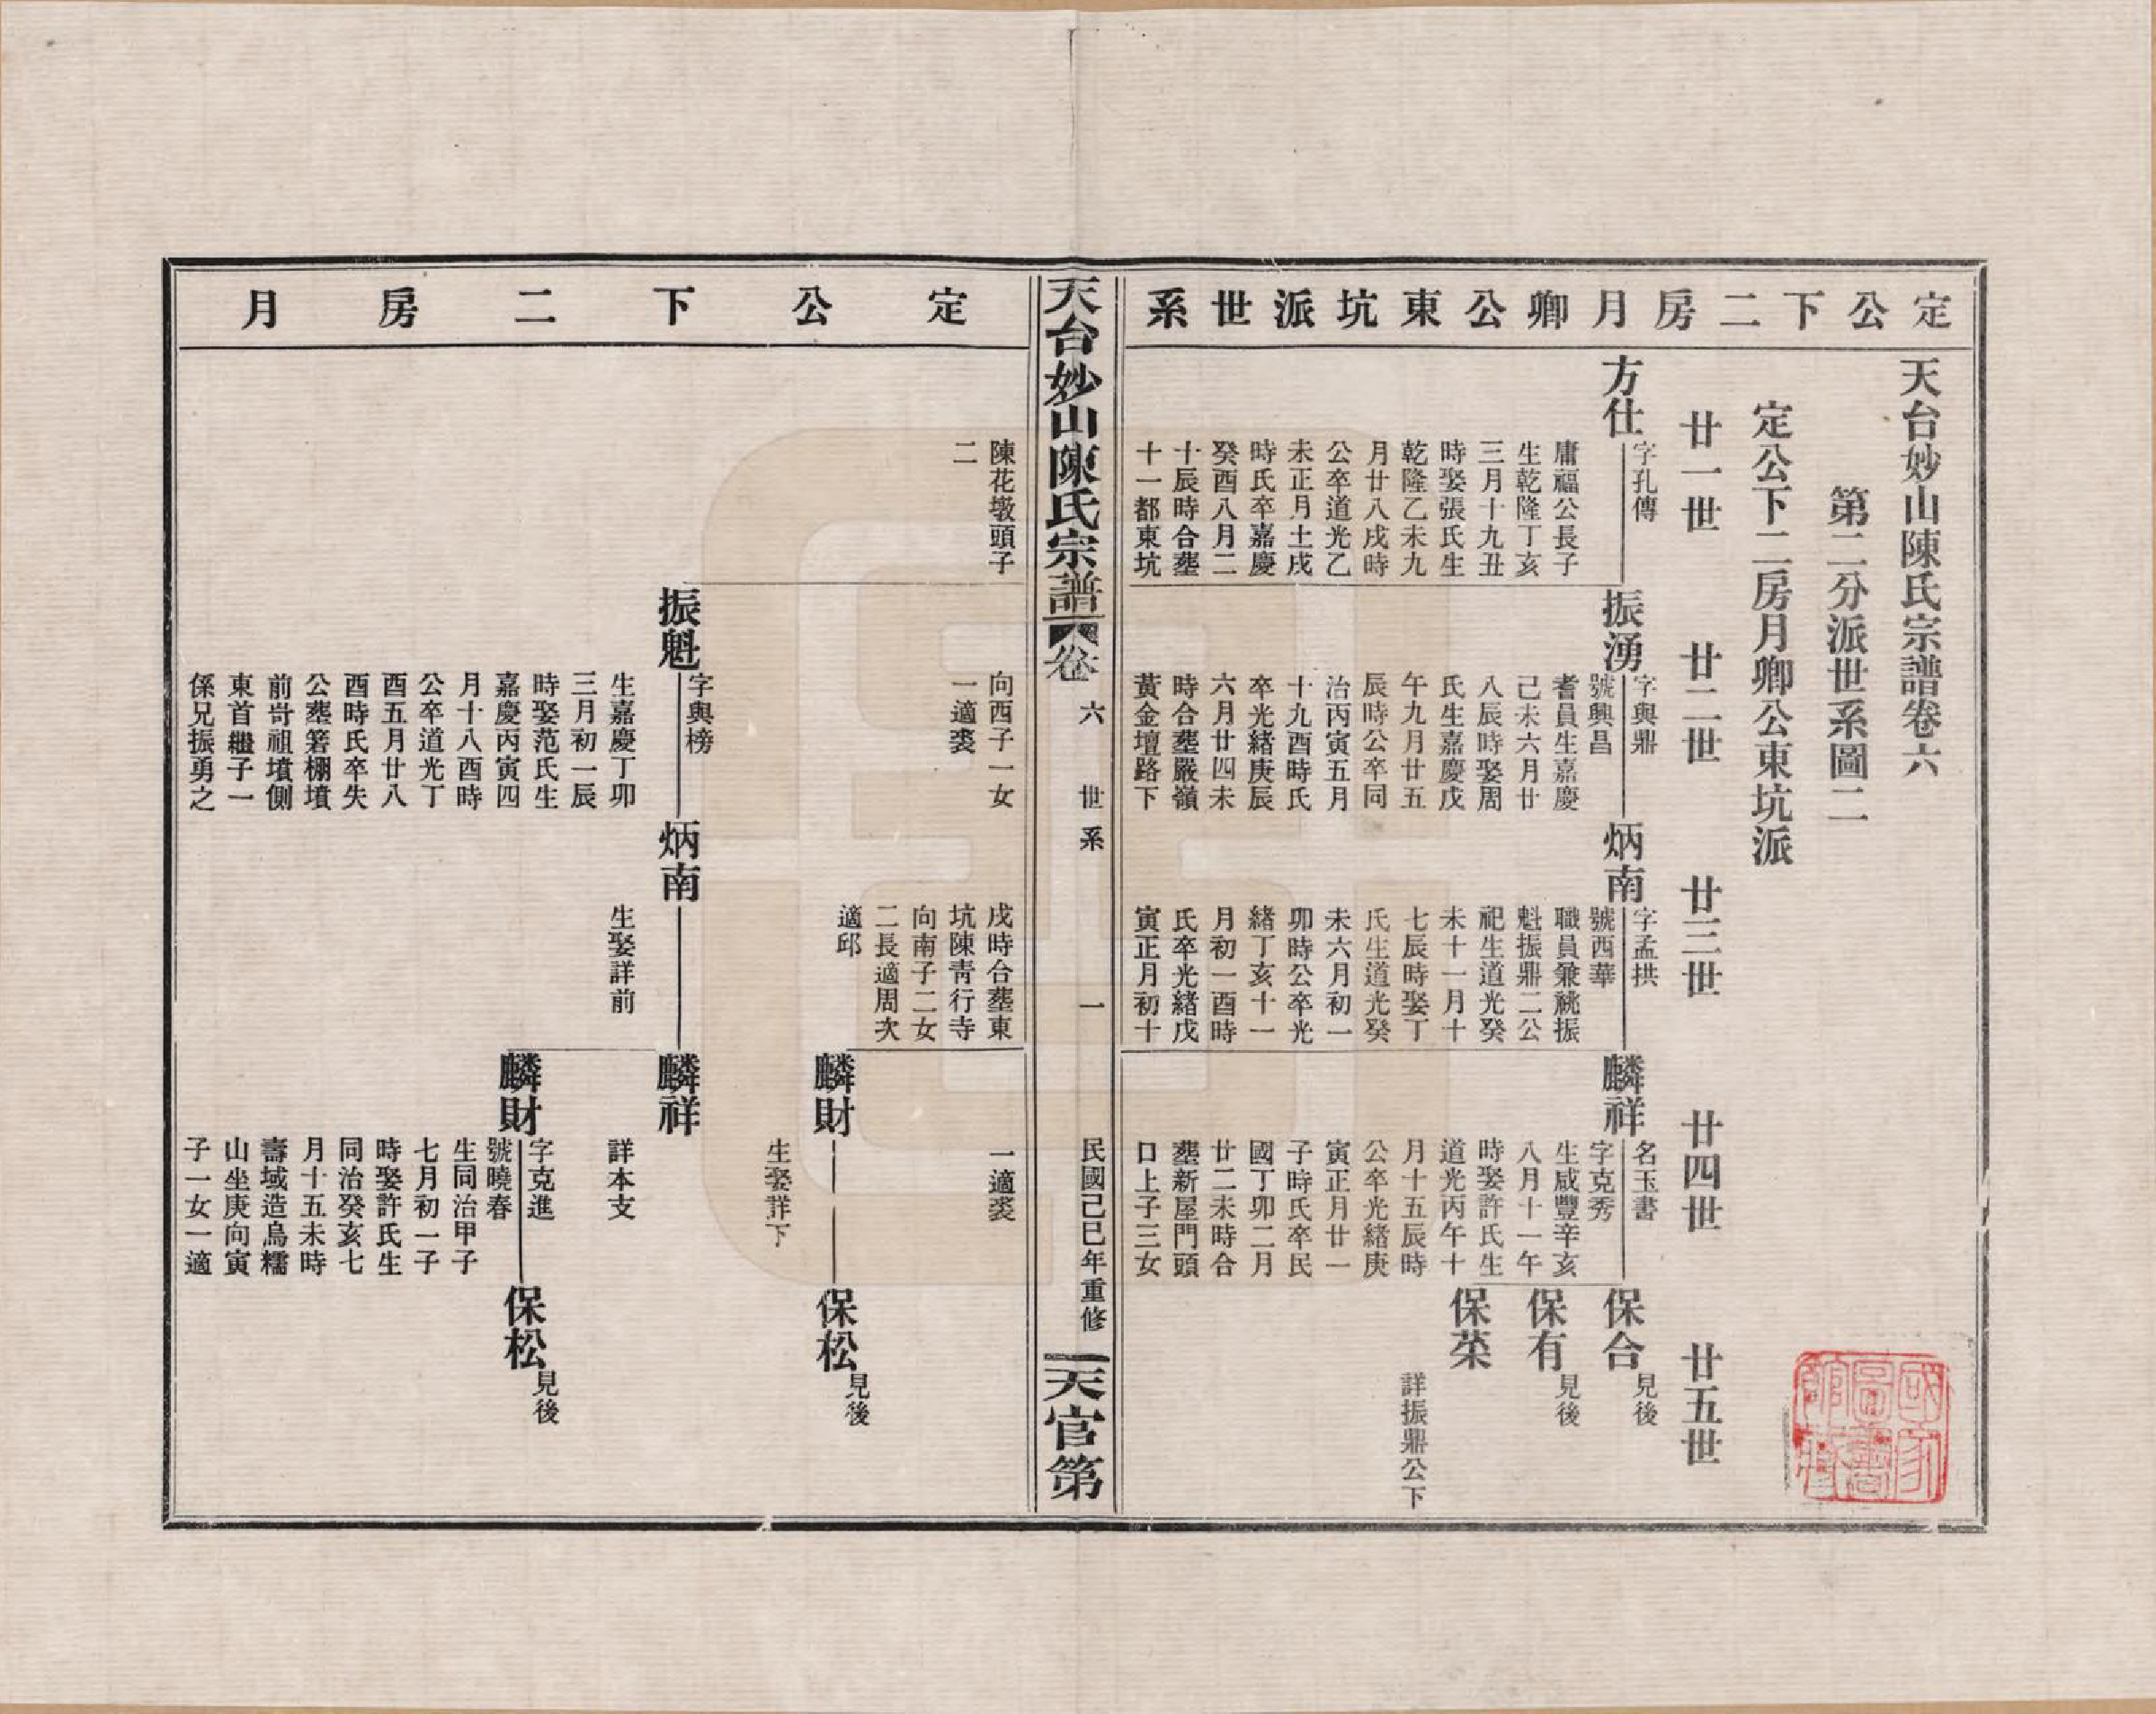 定公下二房月卿公東坑派世系
天台妙山陳氏宗譜卷六
第二分派世系圖二
定公下二房月卿公東坑派
廿一世
廿二世
廿三世
廿四世
廿五世
方仕
字孔傳
庸福公長子
生乾隆丁亥
三月十九丑
時娶張氏生
乾隆乙未九
月廿八戌時
公卒道光乙
未正月十戌
時氏卒嘉慶
癸酉八月二
十辰時合塟
十一都東坑
陳花墩頭子
二
振湧
字與鼎
號興昌
耆員生嘉慶
己未六月廿
八辰時娶周
氏生嘉慶戊
午九月廿五
辰時公卒同
治丙寅五月
十九酉時氏
卒光緒庚辰
六月廿四未
時合塟嚴嶺
黃金壇路下
向西子一女
一適裘
炳南
字孟拱
號西華
職員兼祧振
魁振鼎二公
祀生道光癸
未十一月十
七辰時娶丁
氏生道光癸
未六月初一
卯時公卒光
緒丁亥十一
月初一酉時
氏卒光緒戊
寅正月初十
戌時合塟東
坑陳青行寺
向南子二女
二長適周次
適邱
麟祥
名玉書
字克秀
生咸豐辛亥
八月十一午
時娶許氏生
道光丙午十
月十五辰時
公卒光緒庚
寅正月廿一
子時氏卒民
國丁卯二月
廿二未時合
塟新屋門頭
口上子三女
一適裘
保合
見後
保有
見後
保菜
詳振鼎公下
麟財
生娶詳下
保松
見後
天台妙山陳氏宗譜
卷六
世系
一
民國己巳年重修
天官第
定公下二房月
振魁
字與榜
生嘉慶丁卯
三月初一辰
時娶范氏生
嘉慶丙寅四
月十八酉時
公卒道光丁
酉五月廿八
酉時氏卒失
公塟箬棚墳
前峕祖墳側
東首繼子一
係兄振勇之
炳南
生娶詳前
麟祥
詳本支
麟財
字克進
號曉春
生同治甲子
七月初一子
時娶許氏生
同治癸亥七
月十五未時
壽域造烏糯
山坐庚向寅
子一女一適
保松
見後
國家圖書館藏